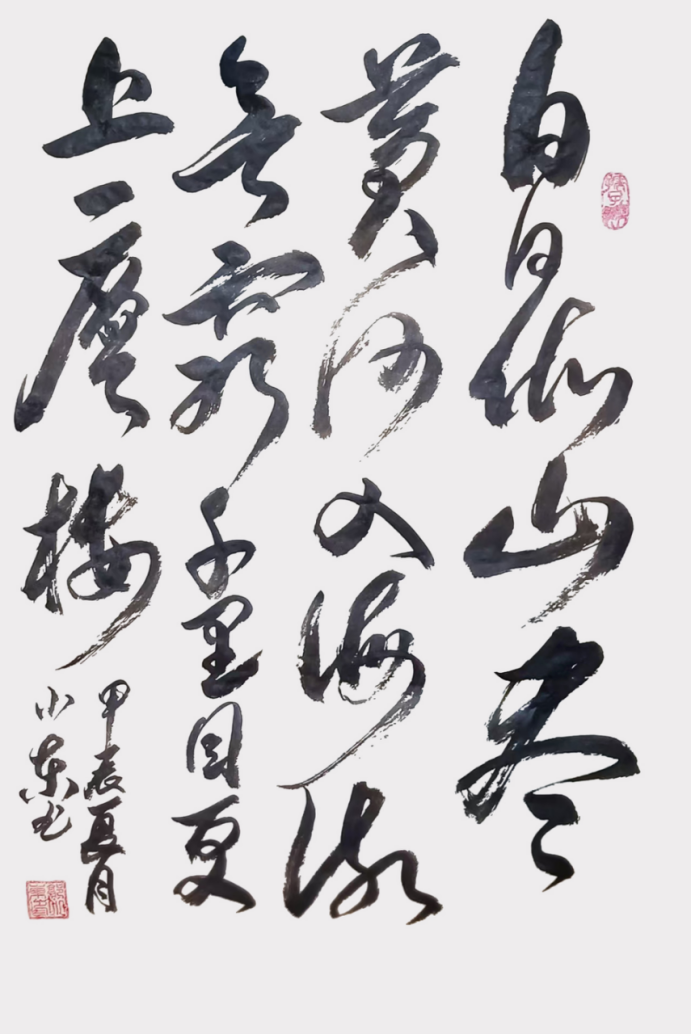 白日依山尽
黄河入海流
欲窮千里目更
上一層楼
甲辰夏月
小东书